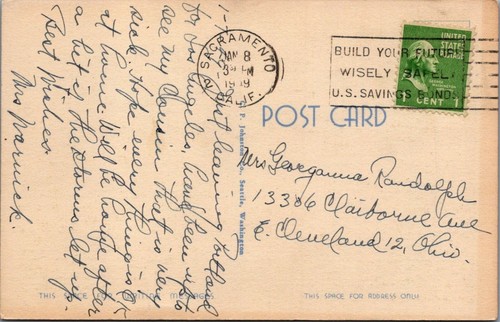 1-7-
Just leaving Portland
for Los Angeles, has been up to
see my Cousin that is very
sick. Hope every thing is O.K.
at home. Will be home after
a bit if the storms let up.
Best Wishes
Mrs Warnick.
SACRAMENTO
JAN 8
CALIF.
BUILD YOUR FUTURE
WISELY SAFELY
U.S. SAVINGS BONDS
UNITED
STATES
POSTAGE
1 CENT 1
POST CARD
Johnston Co., Seattle, Washington
Mrs Georganna Randolph
13306 Claiborne Ave
E. Cleveland 12, Ohio.
THIS SPACE FOR WRITING MESSAGES
THIS SPACE FOR ADDRESS ONLY